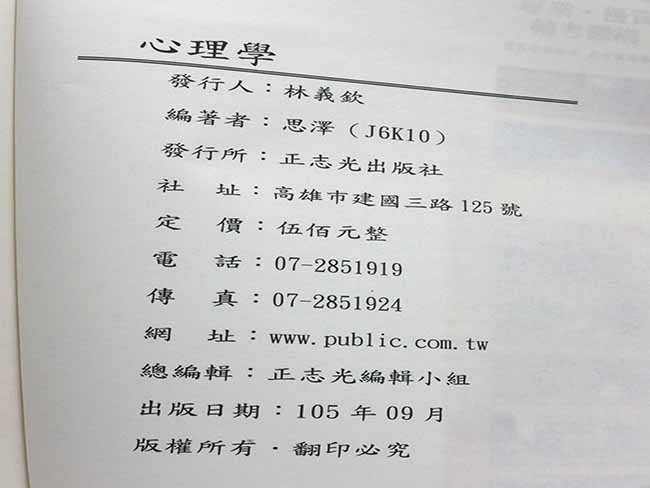 心理學
發行人：林義欽
編著者：思澤（J6K10）
發行所：正志光出版社
社　址：高雄市建國三路125號
定　價：伍佰元整
電　話：07-2851919
傳　真：07-2851924
網　址：www.public.com.tw
總編輯：正志光編輯小組
出版日期：105年09月
版權所有．翻印必究